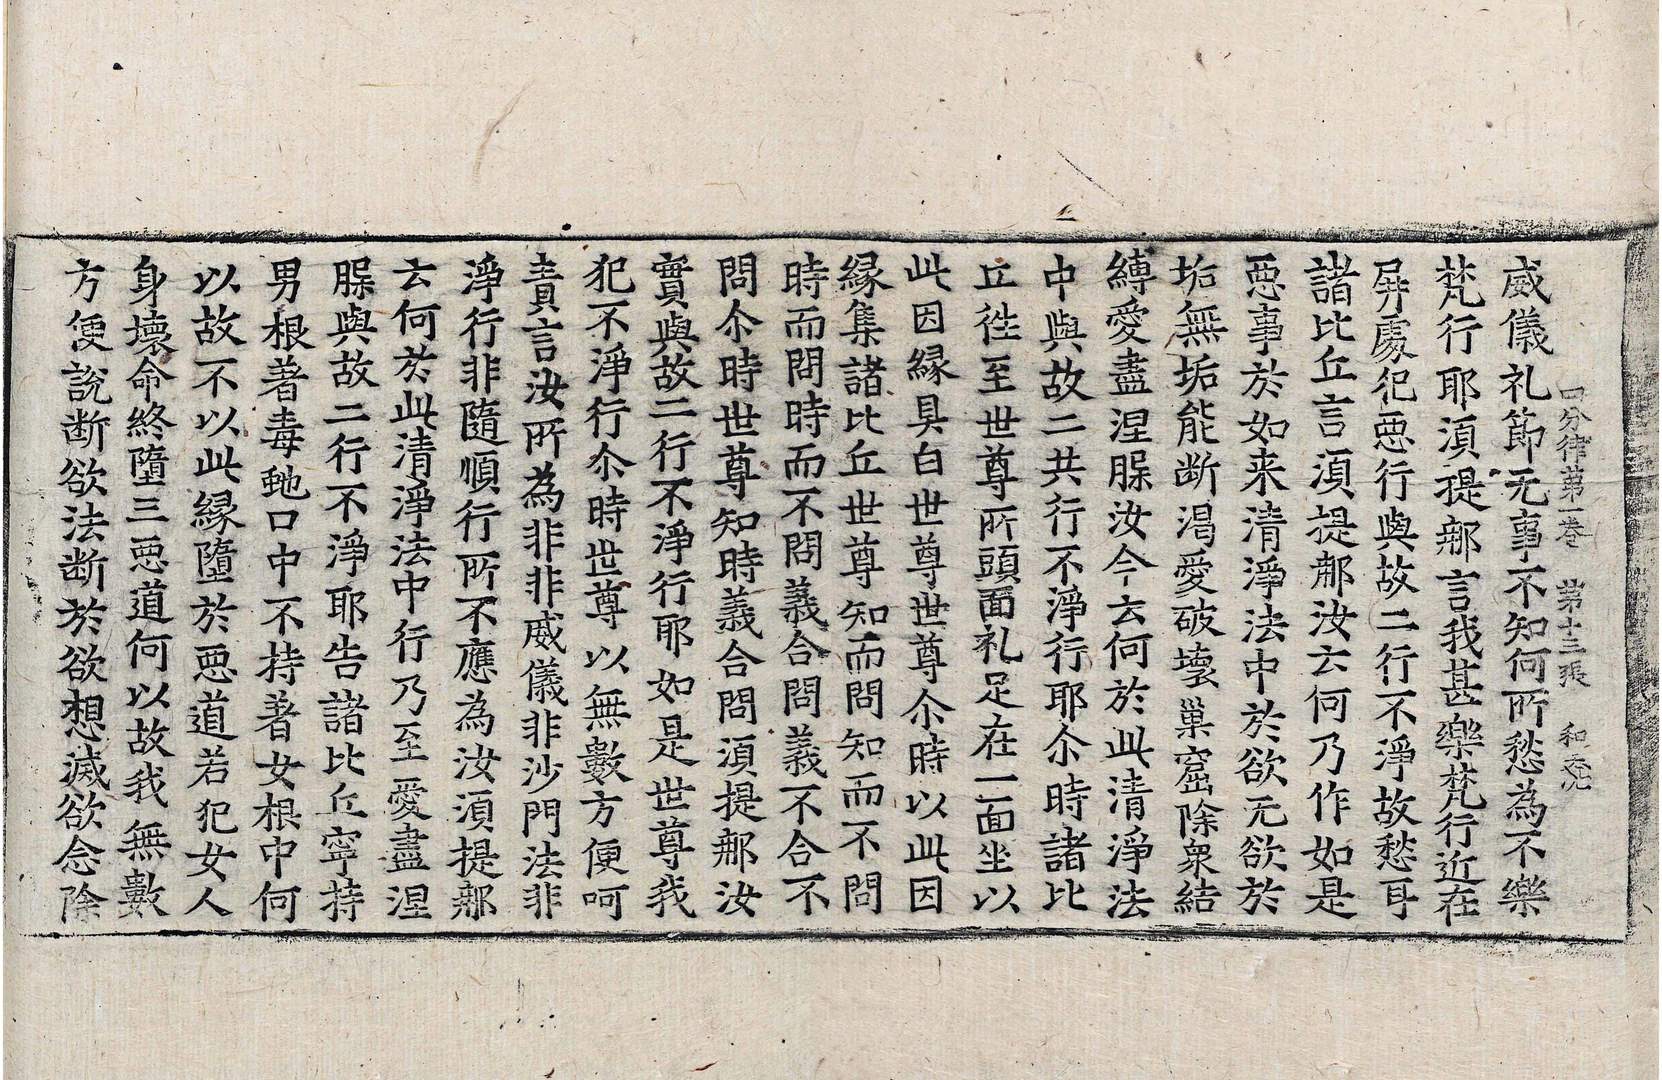 四分律第一卷 第十三張 和
威儀礼節无事不知何所愁為不樂
梵行耶湏提𨚗言我甚樂梵行近在
屏處犯惡行與故二行不淨故愁耳
諸比丘言湏提𨚗汝云何乃作如是
惡事於如来清淨法中於欲无欲於
垢無垢能断渴愛破壞巢窟除衆結
縛愛盡涅槃汝今云何於此清淨法
中與故二共行不淨行耶尒時諸比
丘往至世尊所頭面礼足在一面坐以
此因縁具白世尊世尊尒時以此因
縁集諸比丘世尊知而問知而不問
時而問時而不問義合問義不合不
問尒時世尊知時義合問湏提𨚗汝
實與故二行不淨行耶如是世尊我
犯不淨行尒時世尊以無數方便呵
責言汝所為非非威儀非沙門法非
淨行非隨順行所不應為汝湏提𨚗
云何於此清淨法中行乃至愛盡涅
槃與故二行不淨耶告諸比丘寧持
男根著毒虵口中不持著女根中何
以故不以此縁墮於惡道若犯女人
身壞命終墮三惡道何以故我無數
方便說断欲法断於欲想滅欲念除